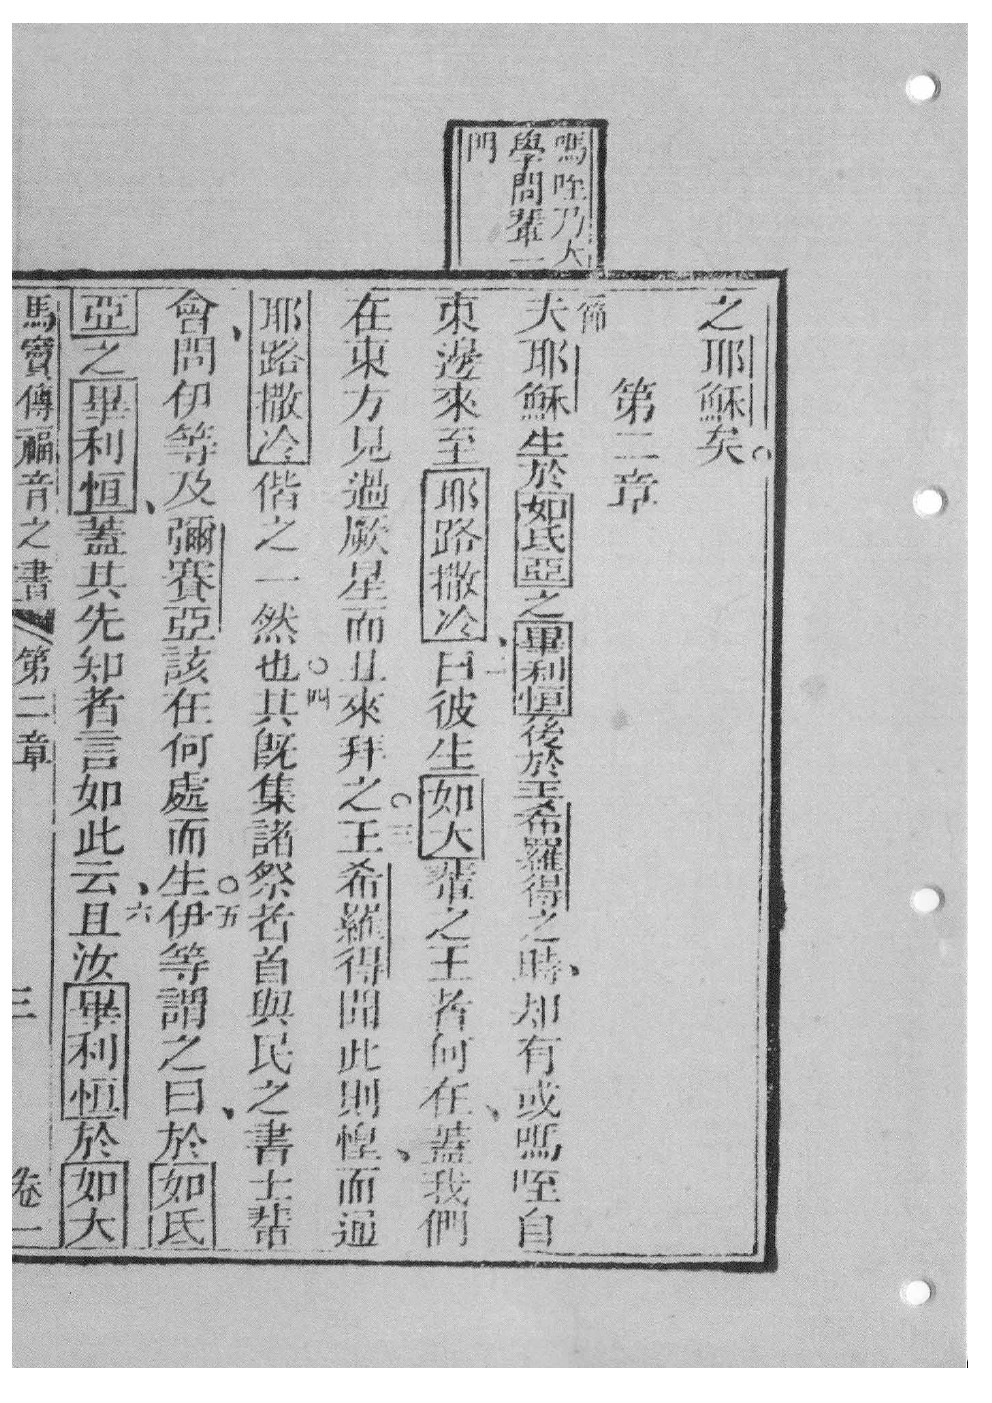 嗎咥乃大
學問輩一
門
之耶穌矣
第二章
一節
夫耶穌生於如氐亞之畢利恒後於王希羅得之時、却有或嗎咥自
東邊來至耶路撒冷、二曰彼生如大輩之王者何在、蓋我們
在東方見過厥星而且來拜之○三王希羅得聞此則惶、而通
耶路撒冷偕之一然也○四其既集諸祭者首與民之書士輩
會、問伊等及彌賽亞該在何處而生○五伊等謂之曰、於如氐
亞之畢利恒、蓋其先知者言如此云、六且汝畢利恒於如大
馬竇傳福音之書 第二章 三 卷一